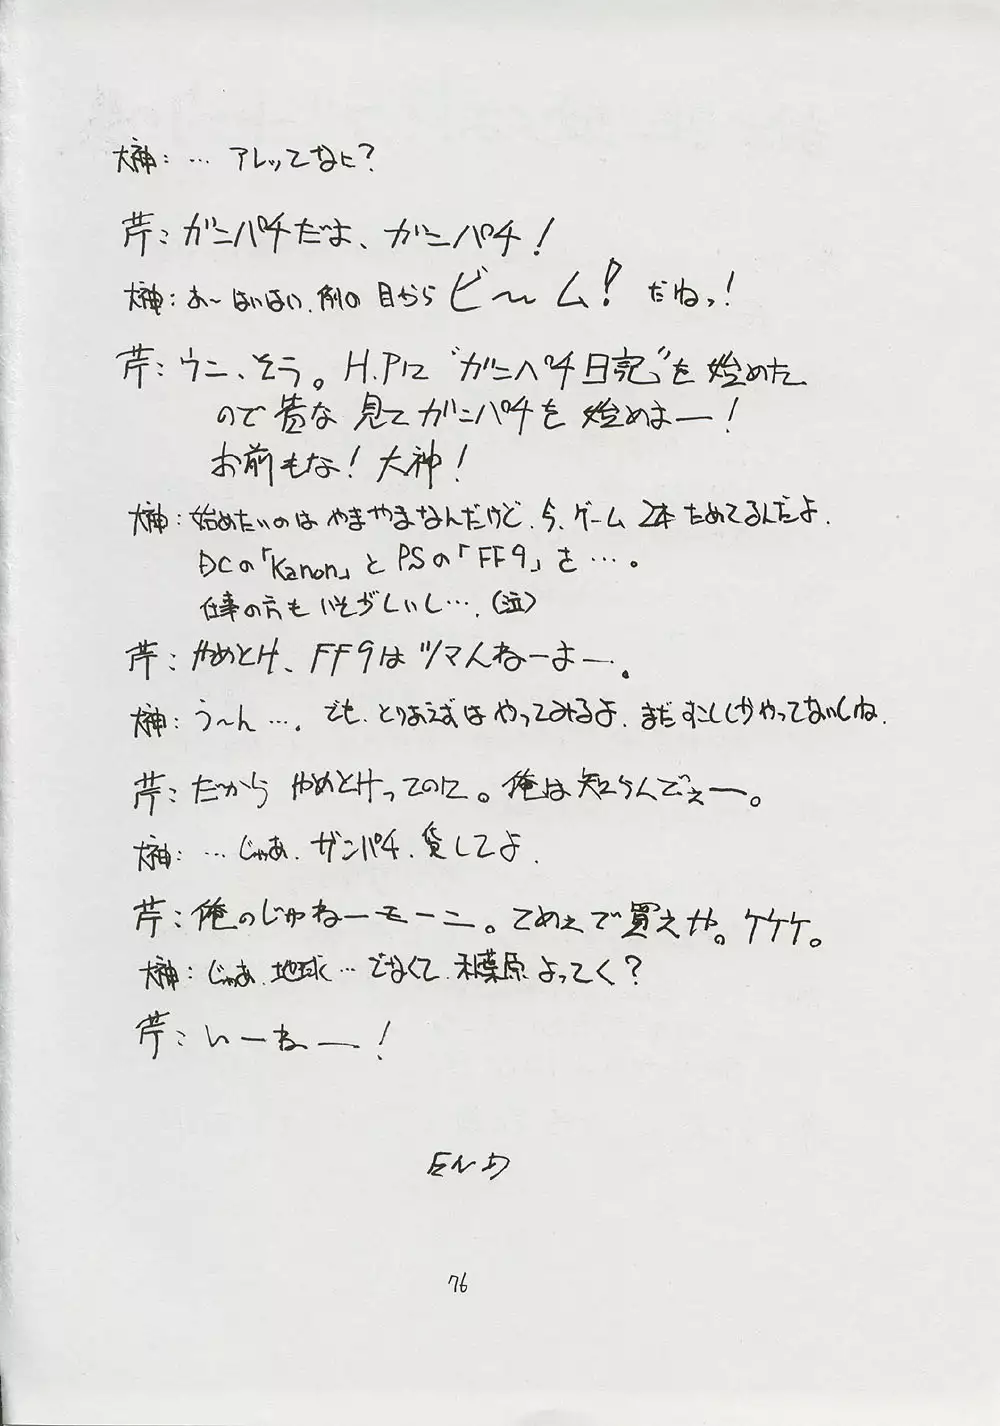 大神：… アレってなに？
芹：ガンパチだよ、ガンパチ！
大神：あ〜はいはい、例の目からビーム！だねっ！
芹：ウン、そう。H.Pに“ガンパチ日記”を始めた
ので皆な見てガンパチを始めよー！
お前もな！大神！
大神：始めたいのはやまやまなんだけど、今、ゲーム2本ためてるんだよ、
DCの「Kanon」とPSの「FF9」を…。
仕事の方もいそがしいし…、（泣）
芹：やめとけ、FF9はツマんねーよー。
大神：う〜ん…。でも、とりあえずはやってみるよ、まだすこししかやってないしね、
芹：だからやめとけってのに。俺は知らんでぇー。
大神：…じゃあ、ガンパチ、貸してよ、
芹：俺のじゃねーモーン。てめぇで買えや。ケケケ。
大神：じゃあ、地球…でなくて、秋葉原よってく？
芹：いーねー！
END
76